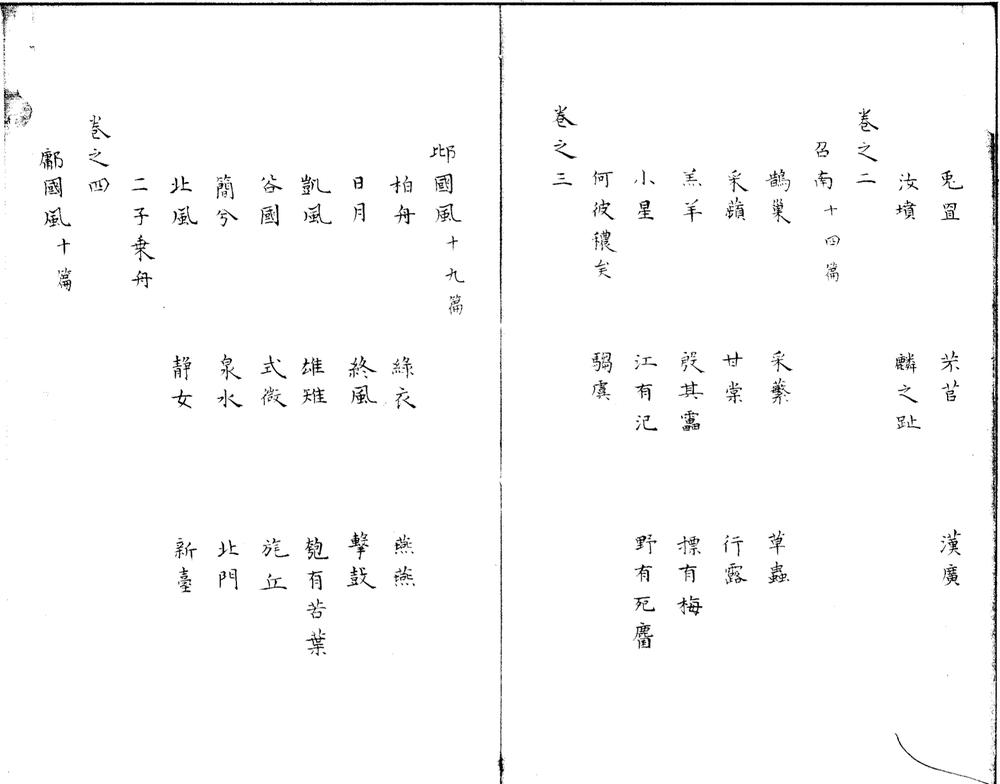 兎罝 芣苢 漢廣
汝墳 麟之趾
召南十四篇
卷之二
鵲巢 采蘩 草蟲
采蘋 甘棠 行露
羔羊 殷其靁 摽有梅
小星 江有汜 野有死麕
何彼穠矣 騶虞
卷之三
邶國風十九篇
柏舟 綠衣 燕燕
日月 終風 擊鼓
凱風 雄雉 匏有苦葉
谷國 式微 旄丘
簡兮 泉水 北門
北風 靜女 新臺
二子乗舟
卷之四
鄘國風十篇